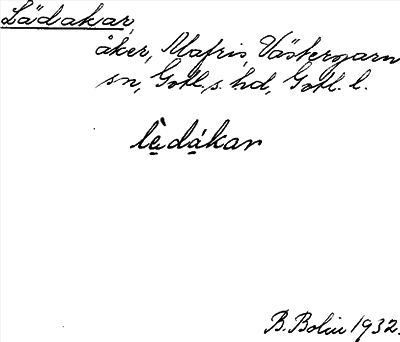 Lädakar,
åker, Mafris, Västergarn
sn, Gotl. s. hd, Gotl. l.
lè̱dá̱kar
B. Bolin 1932.